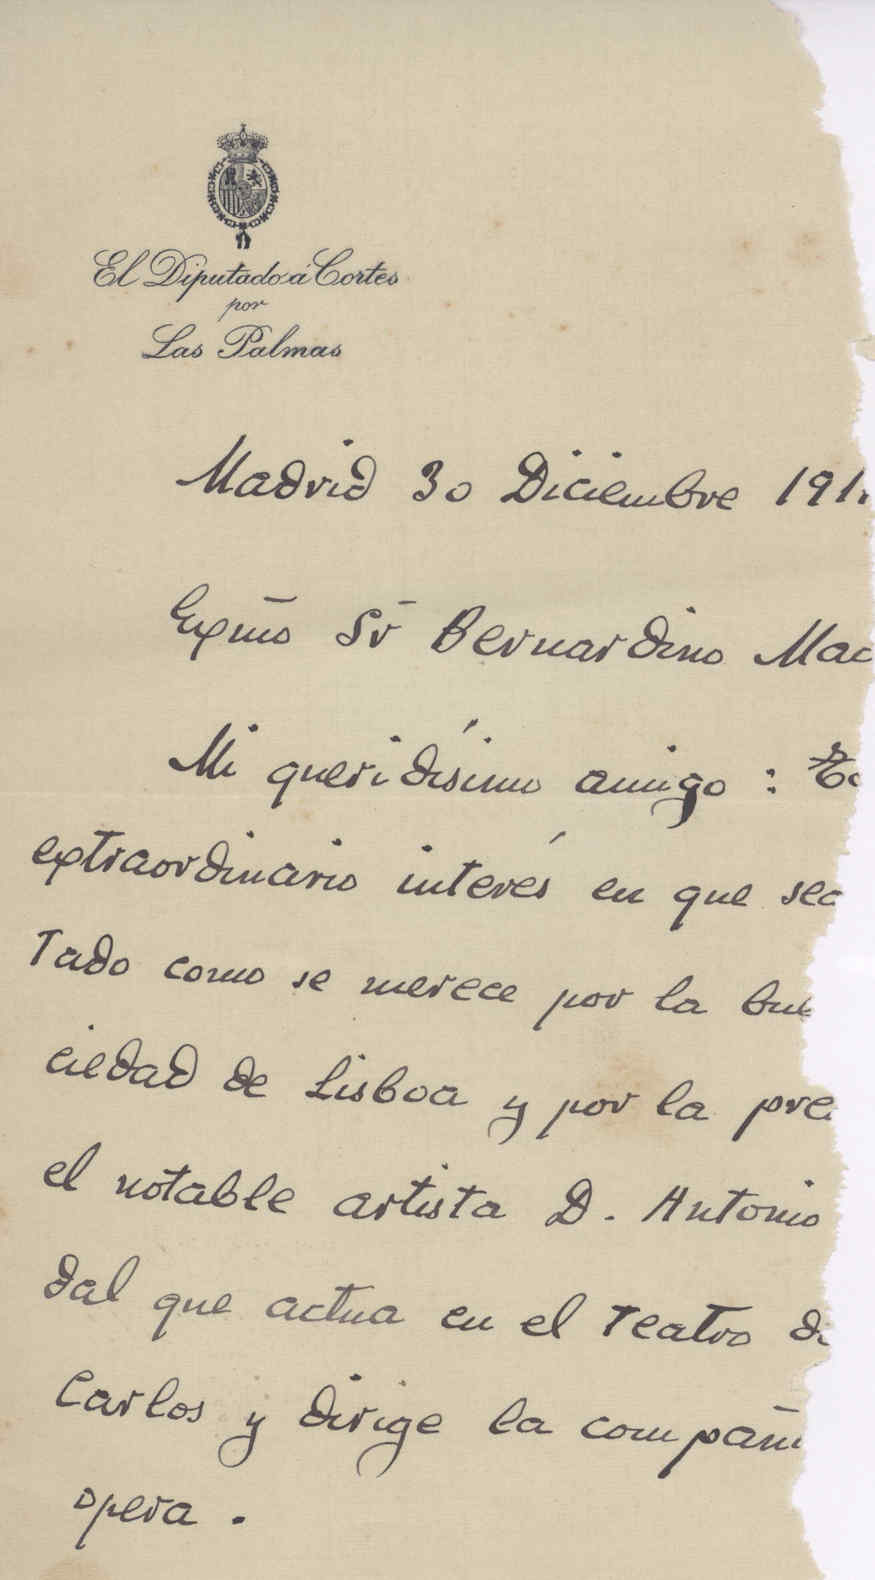 El Diputado á Cortes
por
Las Palmas
Madrid 30 Diciembre 191
Expmo Sr Bernardino Mac
Mi queridísimo amigo :
extraordinario interés en que sea
tado como se merece por la bue
ciedad de Lisboa y por la pre
el notable artista D. Antonio
dal que actua en el Teatro de
Carlos y dirige la compañi
opera .